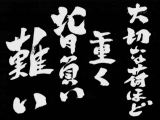 大切な荷ほど
重く
背負い
難い